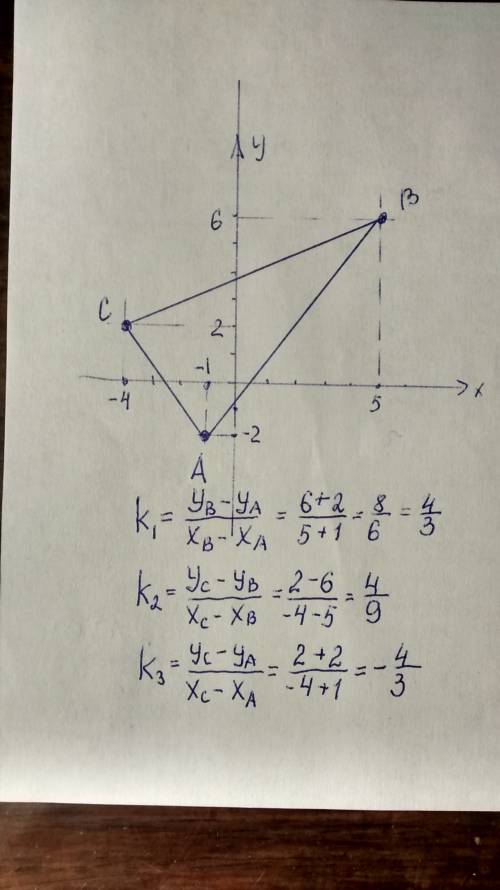 y
B
6
C
2
-1
-4
5
x
-2
A
k₁ = (y_B - y_A)/(x_B - x_A) = (6+2)/(5+1) = 8/6 = 4/3
k₂ = (y_C - y_B)/(x_C - x_B) = (2-6)/(-4-5) = 4/9
k₃ = (y_C - y_A)/(x_C - x_A) = (2+2)/(-4+1) = -4/3